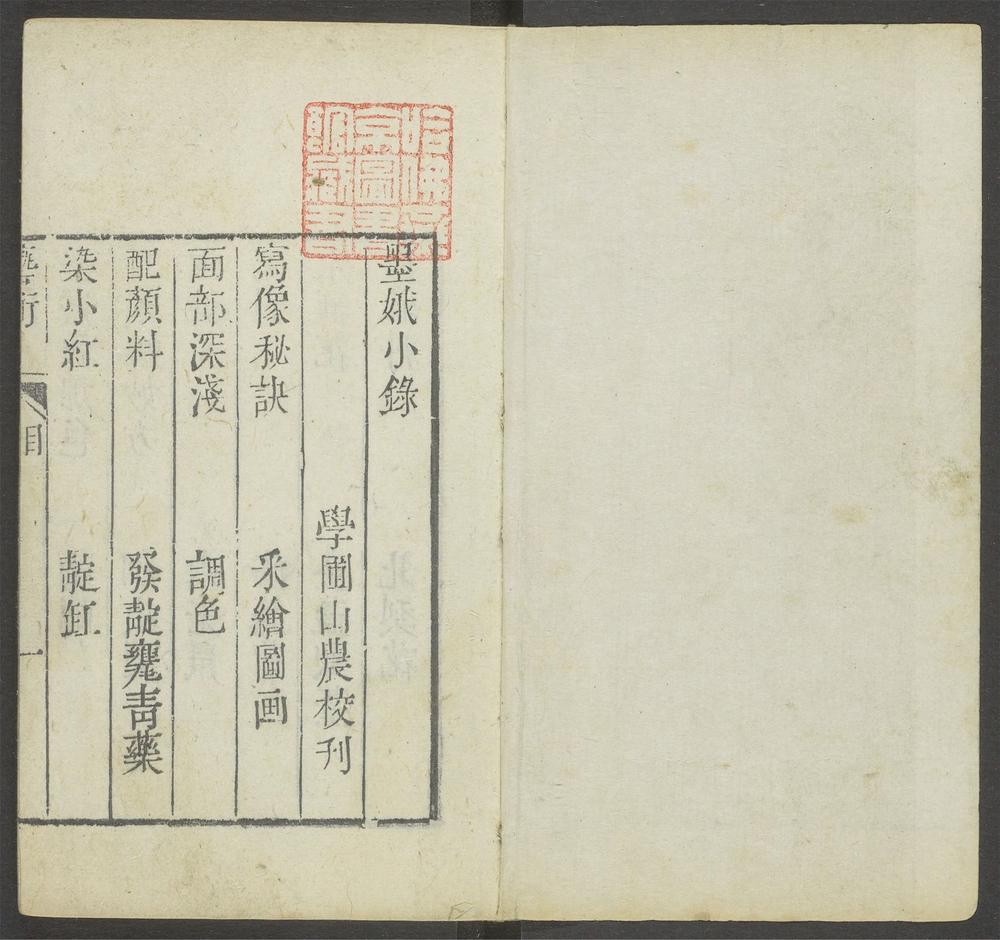 墨娥小錄
學圃山農校刊
寫像秘訣　釆繪圖画
面部深淺　調色
配顏料　發靛甕青藥
染小紅　靛缸
藝術　目　一